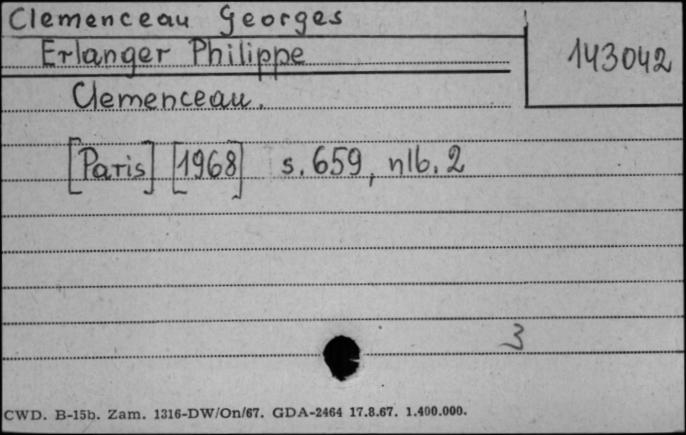 Clemenceau Georges
Erlanger Philippe
143042
Clemenceau.
[Paris] [1968] s. 659, nlb. 2
3
CWD. B-15b. Zam. 1316-DW/On/67. GDA-2464 17.8.67. 1.400.000.